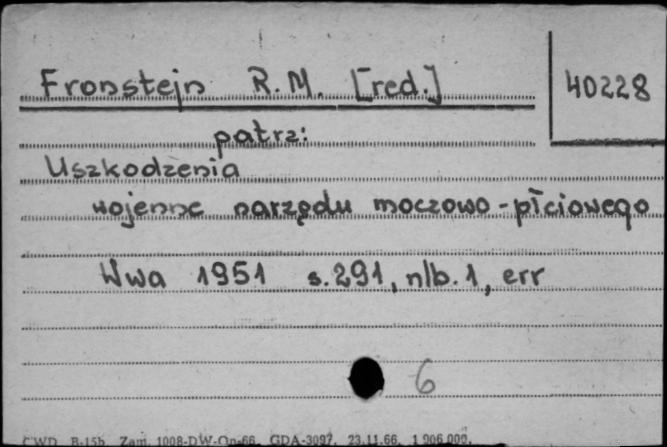 Fronstejn R. M. [red.] 40228
patrz:
Uszkodzenia
wojenne narządu moczowo-płciowego
Wwa 1951 s. 291, nlb. 1, err
6
CWD B-15b Zam. 1008-DW-Op-66. GDA-3097. 23.11.66. 1 906 000.